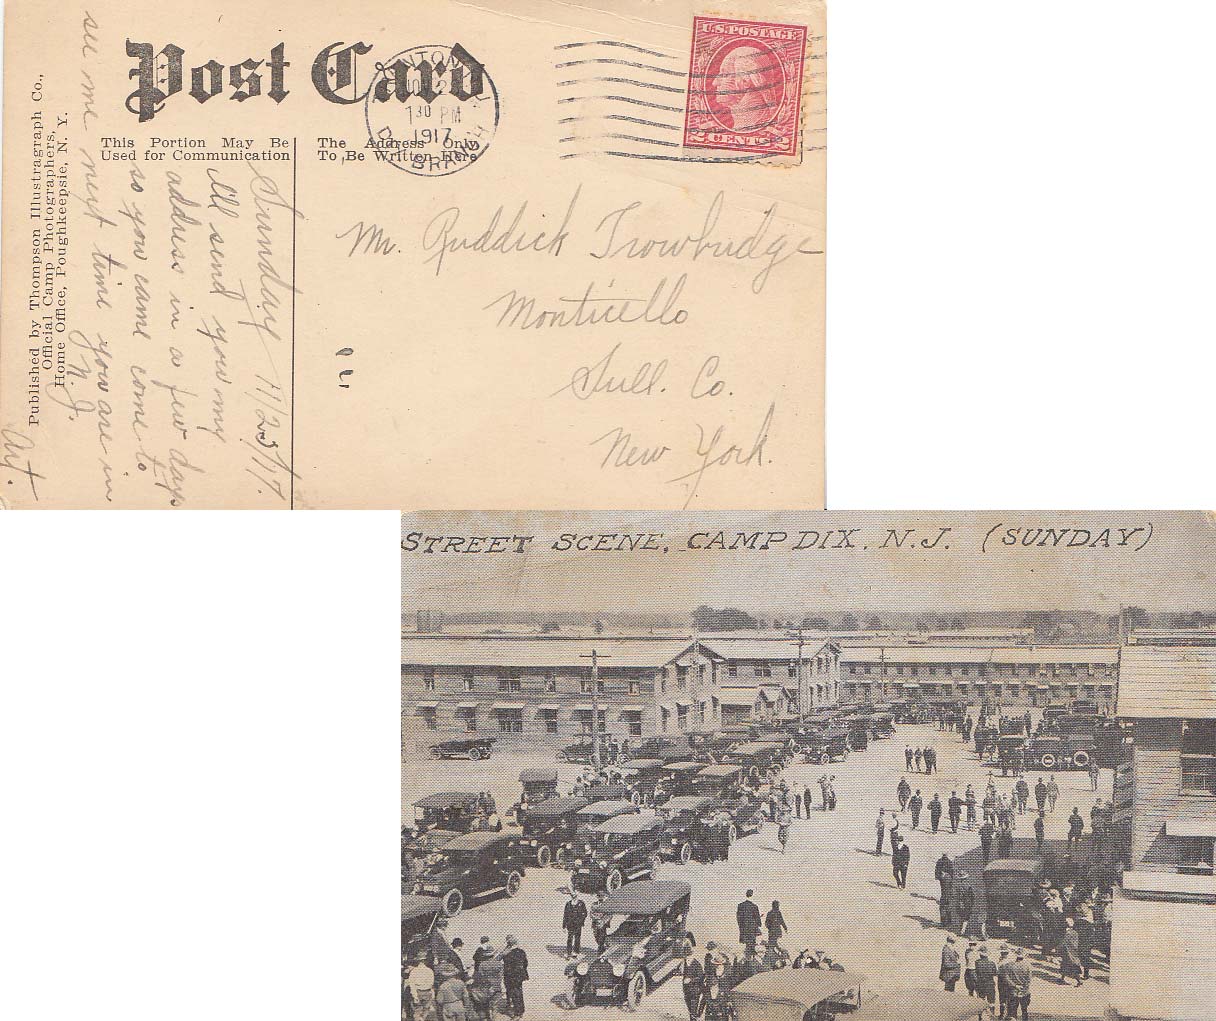 Post Card
This Portion May Be
Used for Communication
The Address Only
To Be Written Here
TRENTON, N.J.
1 30 PM
1917
DIX BRANCH
U.S. POSTAGE
2 CENTS 2
Published by Thompson Illustragraph Co.,
Official Camp Photographers,
Home Office, Poughkeepsie, N. Y.
Sunday 11/25/17.
I'll send you my
address in a few days
so you came come to
see me next time you are in
N. J.
Art.
Mr. Ruddick Trowbridge
Monticello
Sull. Co.
New York.
STREET SCENE, CAMP DIX, N.J. (SUNDAY)